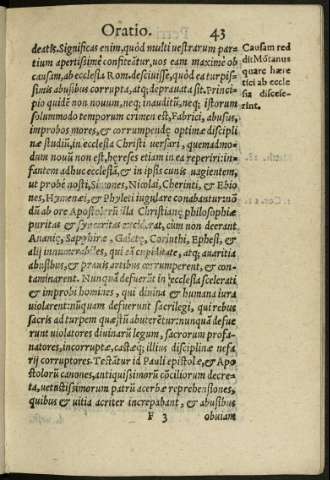 Oratio. 43
deatis. Significas enim, quòd multi uestrarum par-
tium apertissimè confiteātur, uos eam maximè ob
causam, ab ecclesia Rom. desciuisse, quòd ea turpis-
simis abusibus corrupta, atq; deprauata sit. Princi-
piò quidē non nouum, neq; inauditū, neq; istorum
solummodo temporum crimen est, Fabrici, abusus,
improbos mores, & corrumpendę optimæ discipli
næ studiū, in ecclesia Christi uersari, quemadmo-
dum nouū non est, hęreses etiam in ea reperiri: in-
fantem adhuc ecclesiā, & in ipsis cunis uagientem,
ut probè nosti, Simones, Nicolai, Cherinti, & Ebio
nes, Hymenæi, & Phyleti iugulare conabantur: nō
dū ab ore Apostolorū illa Christianę philosophiæ
puritas & synceritas exciderat, cum non deerant
Ananię, Saphyræ, Galatę, Corinthi, Ephesi, &
alij innumerabiles, qui eā cupiditate, atq; auaritia
abusibus, & prauis artibus corrumperent, & con-
taminarent. Nunquā defuerūt in ecclesia scelerati
& improbi homines, qui diuina & humana iura
uiolarent: nūquam defuerunt sacrilegi, qui rebus
sacris ad turpem quæstū abuterētur: nunquā defue
runt uiolatores diuinarū legum, sacrorum profa-
natores, incorruptæ, castæq; illius disciplinæ nefa
rij corruptores. Testātur id Pauli epistolæ, & Apo
stolorū canones, antiquissimorū cōciliorum decre-
ta, uetustissimorum patrū acerbæ reprehensiones,
quibus & uitia acriter increpabant, & abusibus
F 3 obuiam
Causam red
dit Mōtanus
quare hære
tici ab eccle
sia disces-
erint.